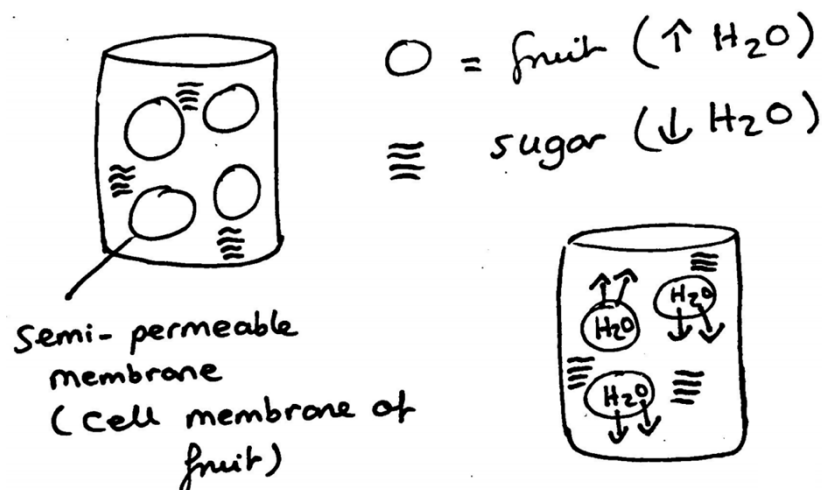 = fruit (↑ H₂O)
sugar (↓ H₂O)
semi-permeable
membrane
(cell membrane of
fruit)
H₂O
H₂O
H₂O